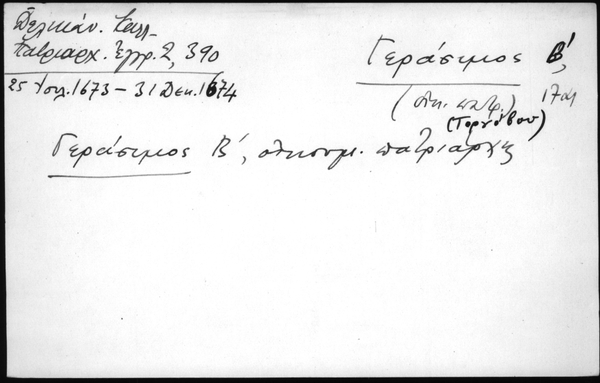 Δελικάν. Καλλ.
Πατριαρχ. Έγγρ. 2, 390
25 1673 – 31 Δεκ. 1674
Γεράσιμος Β΄,
(οικ. πατρ.)
(Τορνόβου)
Γεράσιμος Β΄, οικουμ. πατριάρχης